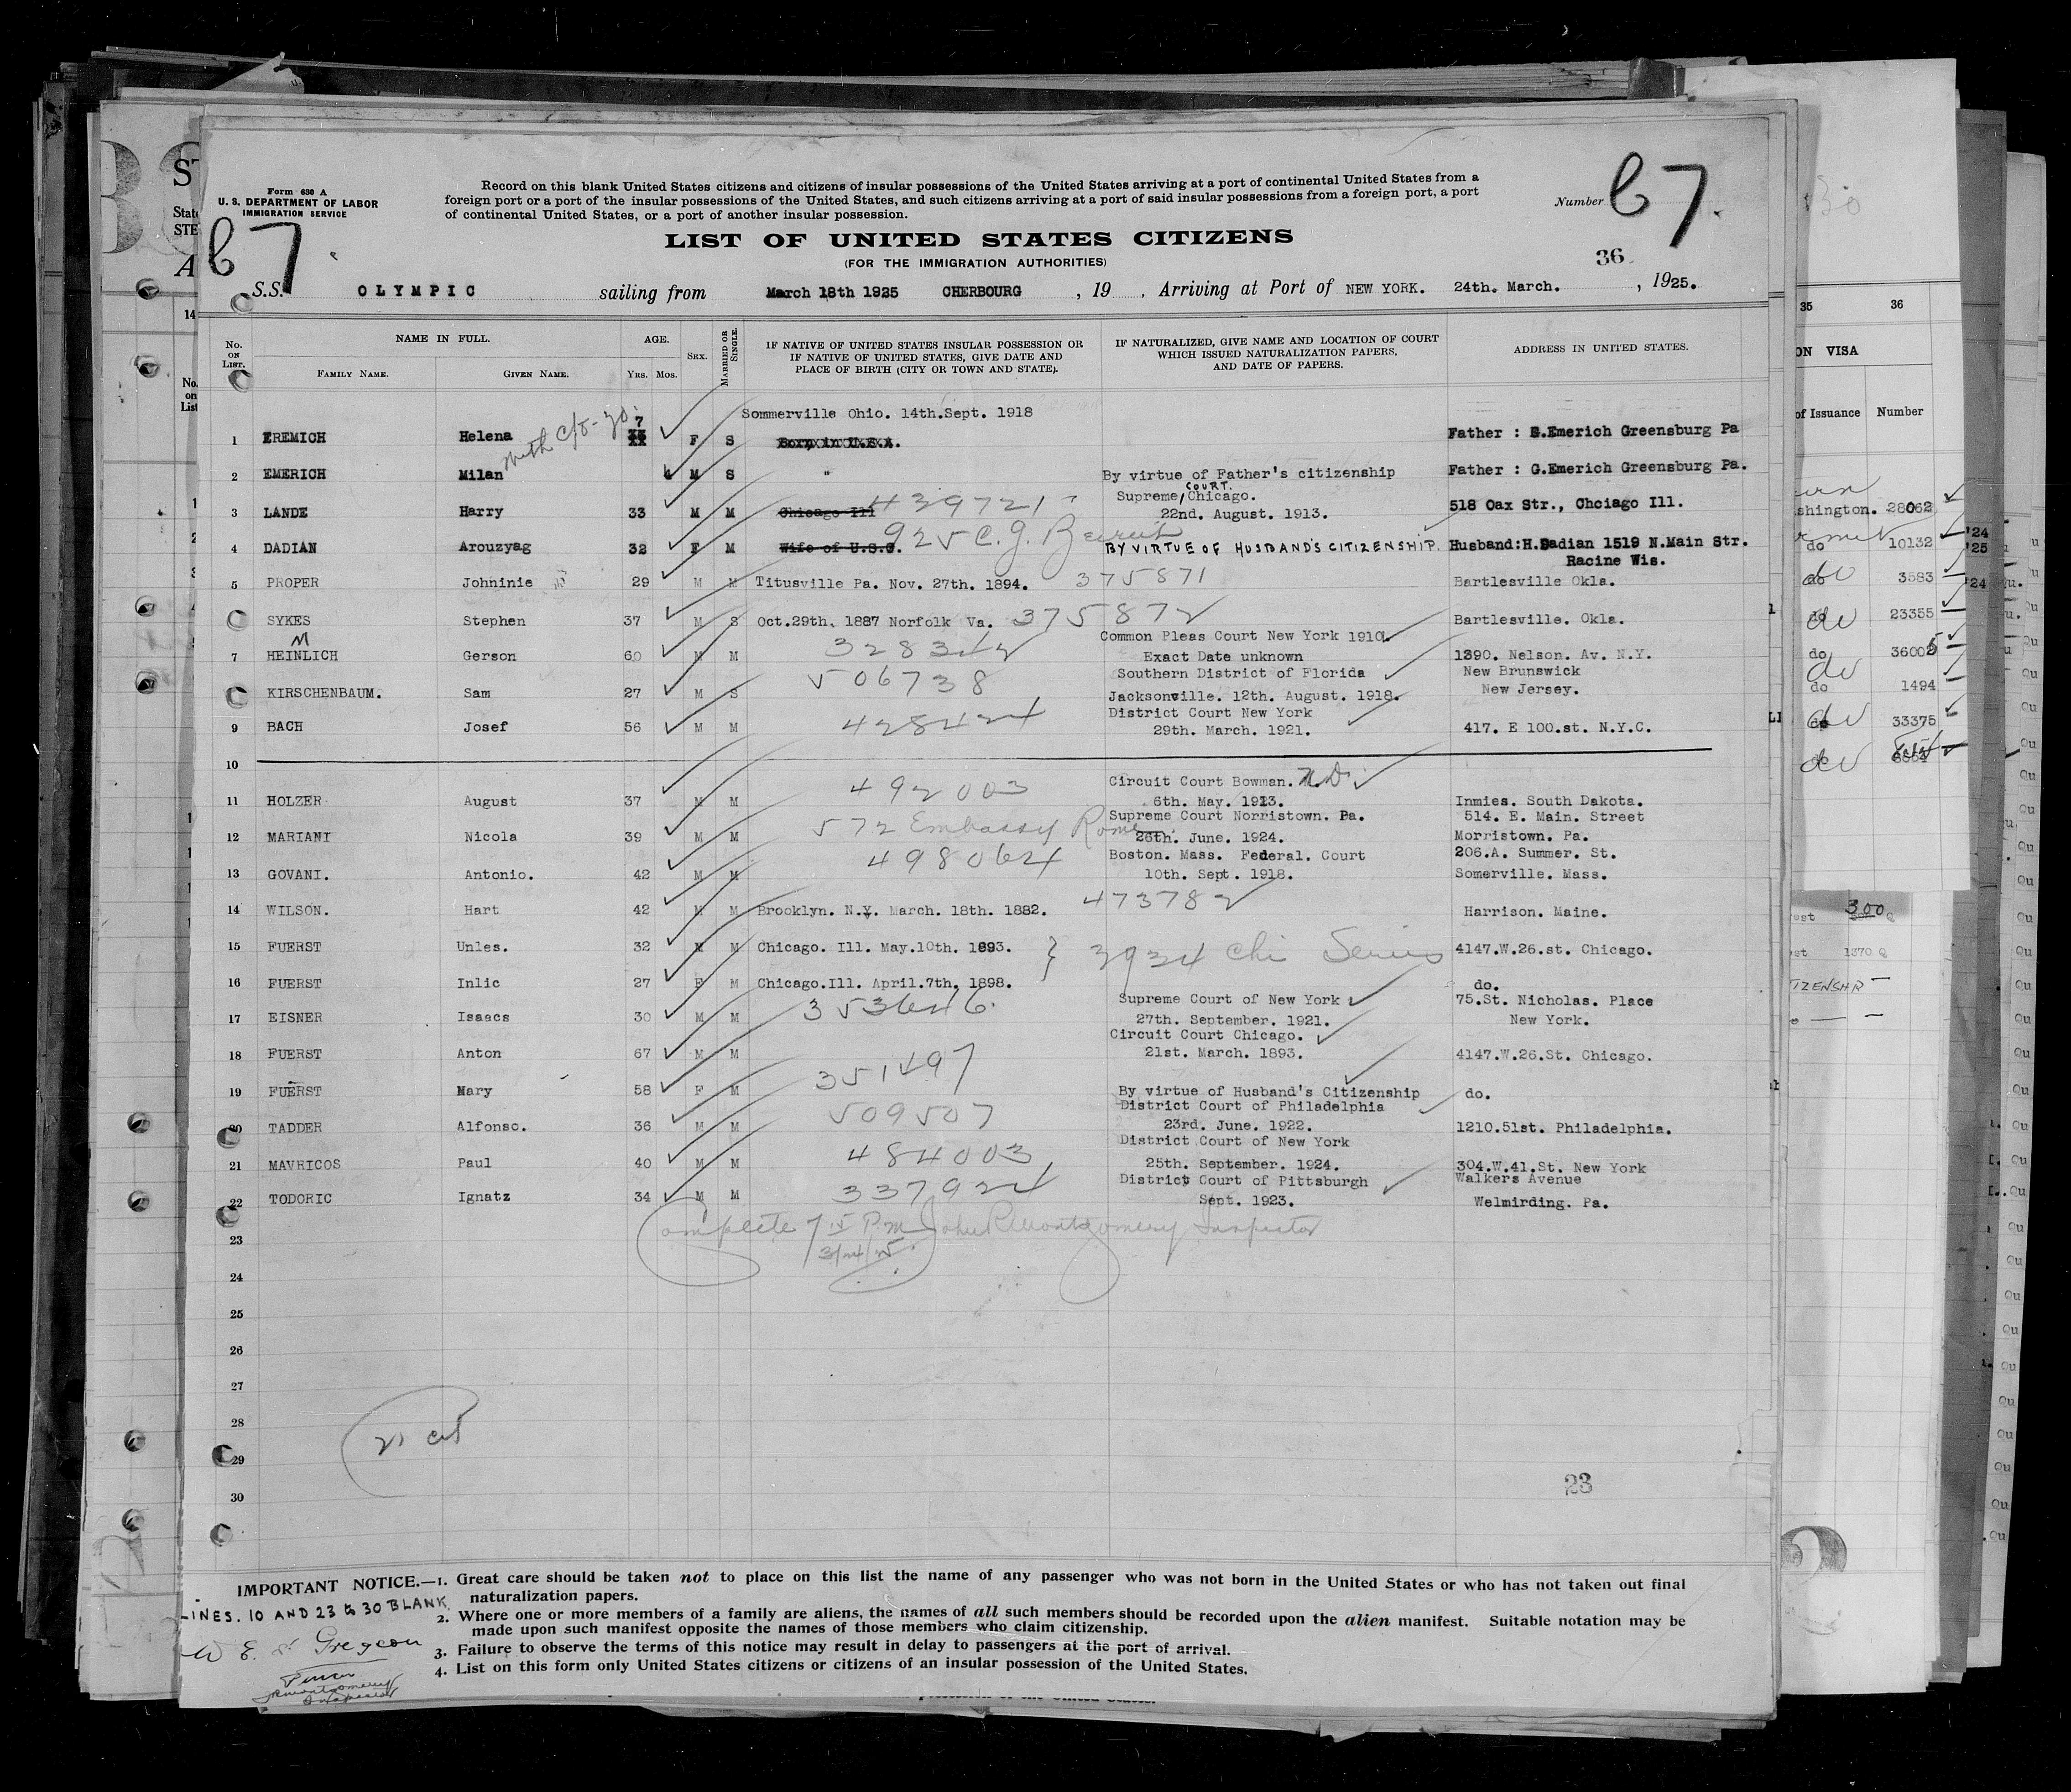 Form 630 A
U. S. DEPARTMENT OF LABOR
IMMIGRATION SERVICE
Record on this blank United States citizens and citizens of insular possessions of the United States arriving at a port of continental United States from a
foreign port or a port of the insular possessions of the United States, and such citizens arriving at a port of said insular possessions from a foreign port, a port
of continental United States, or a port of another insular possession.
Number 67.
67.
LIST OF UNITED STATES CITIZENS
(FOR THE IMMIGRATION AUTHORITIES)
36
S.S. OLYMPIC sailing from March 18th 1925 CHERBOURG , 19 , Arriving at Port of NEW YORK. 24th. March. , 1925.
No. ON LIST. NAME IN FULL. FAMILY NAME. GIVEN NAME. AGE. YRS. MOS. SEX. MARRIED OR SINGLE. IF NATIVE OF UNITED STATES INSULAR POSSESSION OR IF NATIVE OF UNITED STATES, GIVE DATE AND PLACE OF BIRTH (CITY OR TOWN AND STATE). IF NATURALIZED, GIVE NAME AND LOCATION OF COURT WHICH ISSUED NATURALIZATION PAPERS, AND DATE OF PAPERS. ADDRESS IN UNITED STATES.
Sommerville Ohio. 14th.Sept. 1918
1 EREMICH Helena 7 F S Born in U.S.A. Father : G.Emerich Greensburg Pa
2 EMERICH Milan 4 M S " By virtue of Father's citizenship Father : G.Emerich Greensburg Pa.
Supreme/ COURT. Chicago.
3 LANDE Harry 33 M M Chicago Ill 439721 22nd. August. 1913. 518 Oax Str., Choiago Ill.
925 C.G. Beirut
4 DADIAN Arouzyag 32 F M Wife of U.S.C. BY VIRTUE OF HUSBAND'S CITIZENSHIP. Husband:H.Dadian 1519 N.Main Str.
Racine Wis.
5 PROPER Johninie 29 M M Titusville Pa. Nov. 27th. 1894. 375871 Bartlesville Okla.
SYKES Stephen 37 M S Oct.29th. 1887 Norfolk Va. 375872 Bartlesville. Okla.
Common Pleas Court New York 1910.
7 HEINLICH Gerson 60 M M Exact Date unknown 1390. Nelson. Av. N.Y.
Southern District of Florida New Brunswick
KIRSCHENBAUM. Sam 27 M S 506738 Jacksonville. 12th. August. 1918. New Jersey.
District Court New York
9 BACH Josef 56 M M 428424 29th. March. 1921. 417. E 100.st. N.Y.C.
10
Circuit Court Bowman. N.D.
11 HOLZER August 37 M M 492003 6th. May. 1913. Inmies. South Dakota.
Supreme Court Norristown. Pa. 514. E. Main. Street
12 MARIANI Nicola 39 M M 572 Embassy Rome 26th. June. 1924. Morristown. Pa.
Boston. Mass. Federal. Court 206.A. Summer. St.
13 GOVANI. Antonio. 42 M M 498064 10th. Sept. 1918. Somerville. Mass.
14 WILSON. Hart 42 M M Brooklyn. N.Y. March. 18th. 1882. 473782 Harrison. Maine.
15 FUERST Unles. 32 M M Chicago. Ill. May.10th. 1893. 3934 Chi Series 4147.W.26.st. Chicago.
16 FUERST Inlic 27 F M Chicago.Ill. April.7th. 1898. do.
Supreme Court of New York 75.St. Nicholas. Place
17 EISNER Isaacs 30 M M 353646. 27th. September. 1921. New York.
Circuit Court Chicago.
18 FUERST Anton 67 M M 21st. March. 1893. 4147.W.26.St. Chicago.
351497
19 FUERST Mary 58 F M By virtue of Husband's Citizenship do.
District Court of Philadelphia
20 TADDER Alfonso. 36 M M 509507 23rd. June. 1922. 1210.51st. Philadelphia.
District Court of New York
21 MAVRICOS Paul 40 M M 484003 25th. September. 1924. 304.W.41.St. New York
District Court of Pittsburgh Walkers Avenue
22 TODORIC Ignatz 34 M M 337924 Sept. 1923. Welmirding. Pa.
Complete 7 P.m John R Montgomery Inspector
23
24
25
26
27
28
29
30
21 cit
23
IMPORTANT NOTICE.—1. Great care should be taken not to place on this list the name of any passenger who was not born in the United States or who has not taken out final
naturalization papers.
LINES. 10 AND 23 to 30 BLANK.
2. Where one or more members of a family are aliens, the names of all such members should be recorded upon the alien manifest. Suitable notation may be
made upon such manifest opposite the names of those members who claim citizenship.
3. Failure to observe the terms of this notice may result in delay to passengers at the port of arrival.
4. List on this form only United States citizens or citizens of an insular possession of the United States.
35 36
ON VISA
of Issuance Number
shington. 28062
do 10132
do 3583
do 23355
do 36005
do 1494
do 33375
300
1370